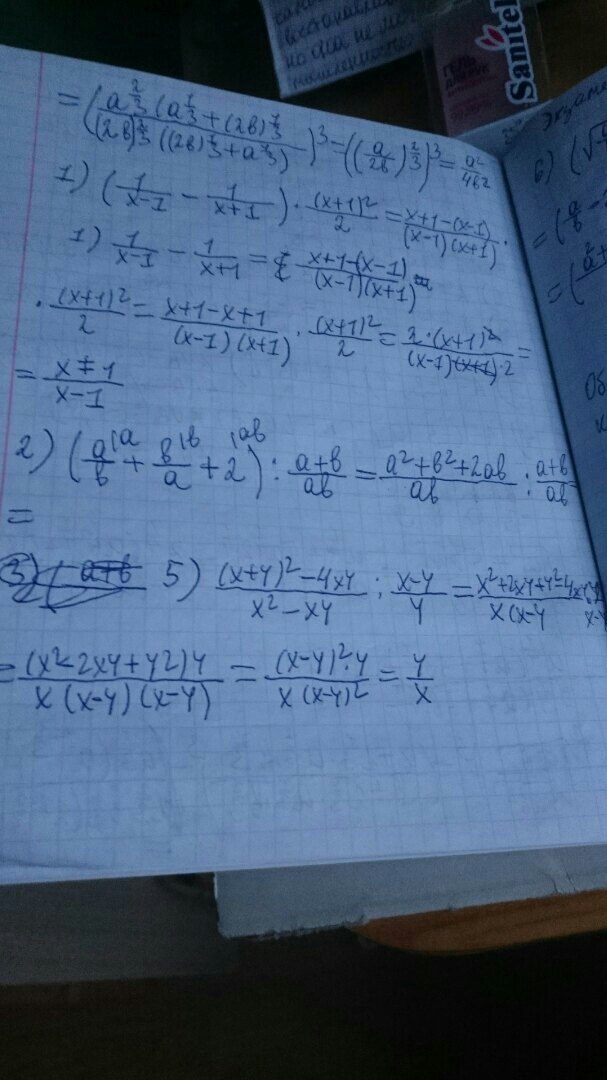 = (a^(2/3) (a^(1/3) + (2b)^(1/3)) / ((2b)^(2/3) ((2b)^(1/3) + a^(1/3))))^3 = ((a/2b)^(2/3))^3 = a^2/4b^2
1) (1/(x-1) - 1/(x+1)) · (x+1)^2/2 = (x+1-(x-1))/((x-1)(x+1)) ·
1) 1/(x-1) - 1/(x+1) = (x+1-(x-1))/((x-1)(x+1))
· (x+1)^2/2 = (x+1-x+1)/((x-1)(x+1)) · (x+1)^2/2 = 2·(x+1)^2/((x-1)(x+1)·2) =
= (x+1)/(x-1)
2) (a/b |a + b/a |b + 2 |ab) : (a+b)/ab = (a^2+b^2+2ab)/ab : (a+b)/ab
=
3) (a+b 5) ((x+y)^2-4xy)/(x^2-xy) : (x-y)/y = (x^2+2xy+y^2-4xy)/(x(x-y
= (x^2-2xy+y^2)y/(x(x-y)(x-y)) = (x-y)^2·y/(x(x-y)^2) = y/x
Sanitel
ГЕЛЬ
6) (√
= (a/b -
= (a^2+